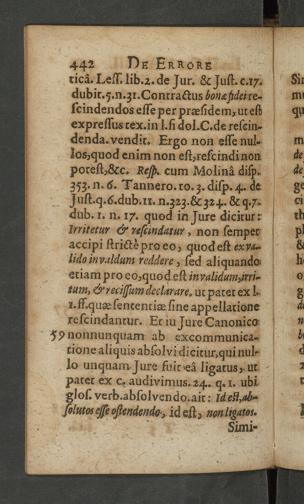 442 DE ERRORE
ticâ. Less. lib. 2. de Jur. & Just. c. 17.
dubit. 5. n. 31. Contractus bonæ fidei re-
scindendos esse per præsidem, ut est
expressus tex. in l. si dol. C. de rescin-
denda. vendit. Ergo non esse nul-
los, quod enim non est, rescindi non
potest, &c. Resp. cum Molinâ disp.
353. n. 6. Tannero. to. 3. disp. 4. de
Just. q. 6. dub. 11. n. 323. & 324. & q. 7.
dub. 1. n. 17. quod in Jure dicitur:
Irritetur & rescindatur, non semper
accipi strictè pro eo, quod est ex va-
lido invalidum reddere, sed aliquando
etiam pro eo, quod est invalidum, irri-
tum, & recissum declarare. ut patet ex l.
1. ff. quæ sententiæ sine appellatione
rescindantur. Et in Jure Canonico
59 nonnunquam ab excommunica-
tione aliquis absolvi dicitur, qui nul-
lo unquam Jure fuit eâ ligatus, ut
patet ex c. audivimus. 24. q. 1. ubi
glos. verb. absolvendo. ait: Id est, ab-
solutos esse ostendendo, id est, non ligatos.
Simi-